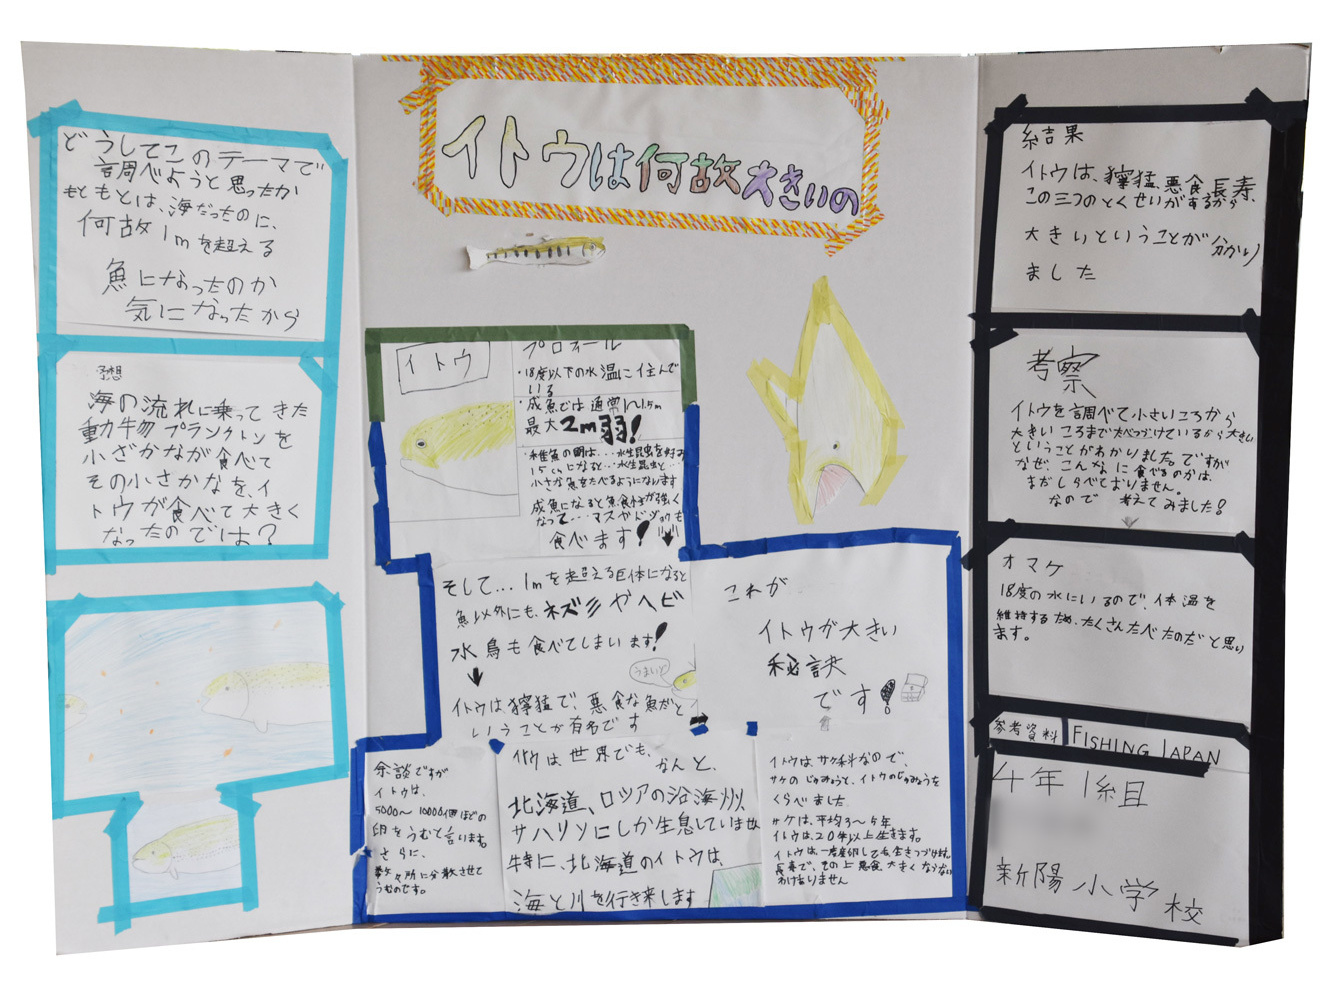 イトウは何故大きいの
どうしてこのテーマで
調べようと思ったか
もともとは、海だったのに、
何故1mを超える
魚になったのか
気になったから
予想
海の流れに乗ってきた
動物プランクトンを
小ざかなが食べて
その小さかなを、イ
トウが食べて大きく
なったのでは?
イトウ
プロフィール
・18度以下の水温に住んで
いる
・成魚では通常1〜1.5m
最大2m弱!
・稚魚の頃は...水生昆虫を好み
15cmになると...水生昆虫と...
小さな魚をたべるようになります
成魚になると魚食性が強く
なって...マスやドジョウも
食べます!
そして...1mを超える巨体になると
魚以外にも、ネズミやヘビ
水鳥も食べてしまいます!
うまいど
イトウは獰猛で、悪食な魚だと
いうことが有名です
これが
イトウが大きい
秘訣
です!
余談ですが
イトウは、
5000〜10000個ほどの
卵をうむと言います。
さらに、
数ヶ所に分散させて
うむのです。
イトウは世界でも、
なんと、
北海道、ロシアの沿海州、
サハリンにしか生息していません
特に、北海道のイトウは、
海と川を行き来します
イトウは、サケ科なので、
サケのじゅみょうと、イトウのじゅみょうを
くらべました
サケは、平均3〜5年
イトウは、20年以上生きます。
イトウは、一度産卵しても生きつづけます。
長寿で、その上悪食大きくならない
わけありません
結果
イトウは、獰猛、悪食、長寿、
この三つのとくせいがするから、
大きいということが分かり
ました
考察
イトウを調べて小さいころから
大きいころまでたべつづけているから大きい
ということがわかりました。ですが
なぜ、こんなに食べるのかは、
まだしらべておりません。
なので 考えてみました!
オマケ
18度の水にいるので、体温を
維持するため、たくさんたべたのだと思い
ます。
参考資料
FISHING JAPAN
4年1組
新陽小学校